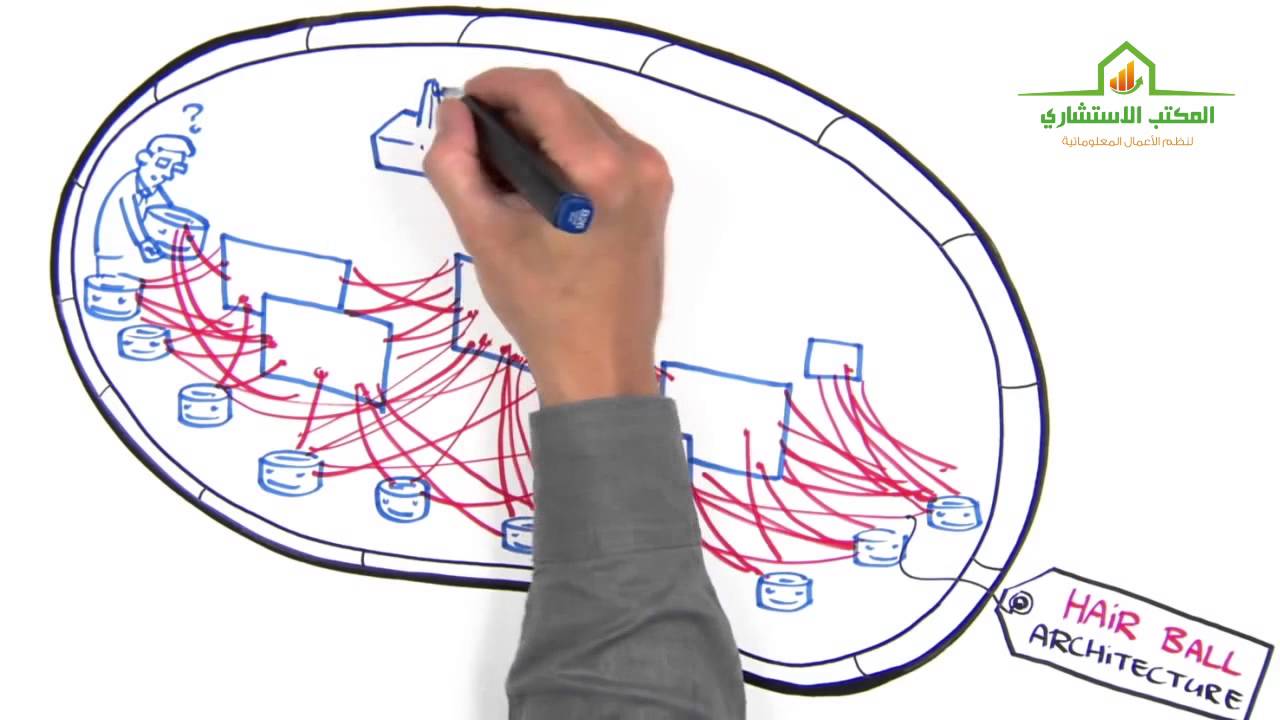 ?
المكتب الاستشاري
لنظم الأعمال المعلوماتية
HAIR BALL
ARCHITECTURE